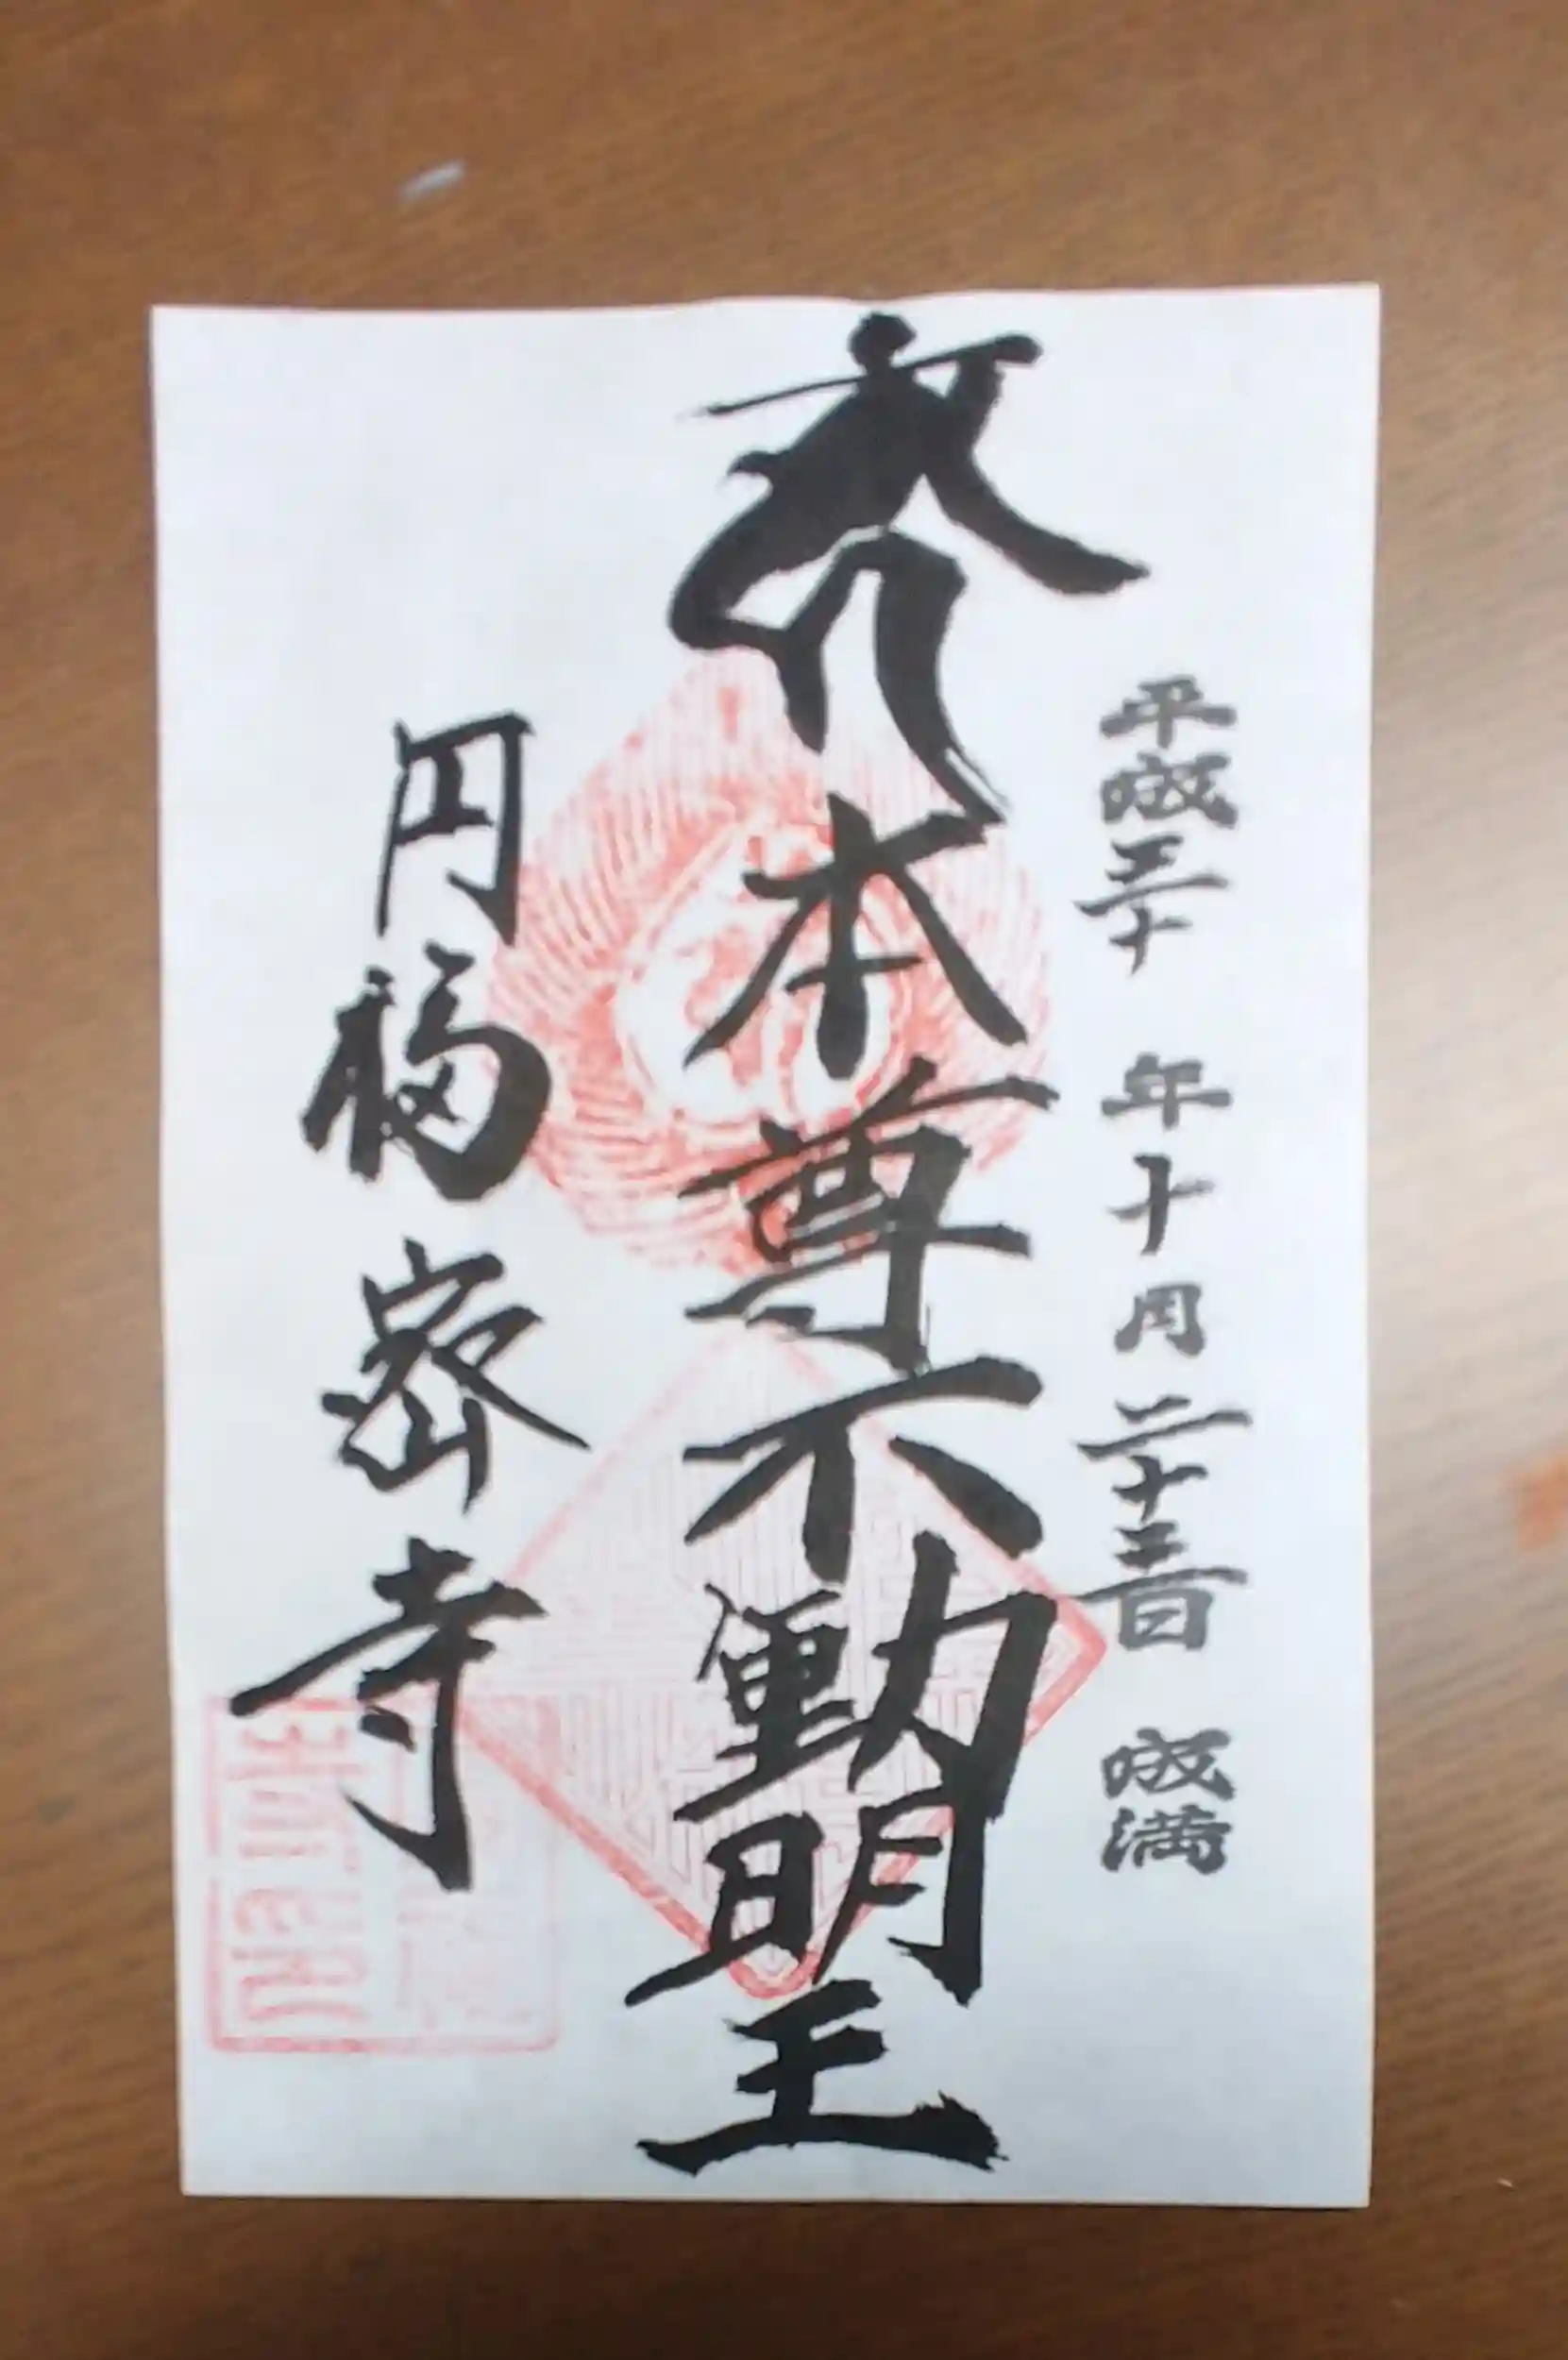 平成三十 年十月二十三日 成満
本尊不動明王
円福密寺